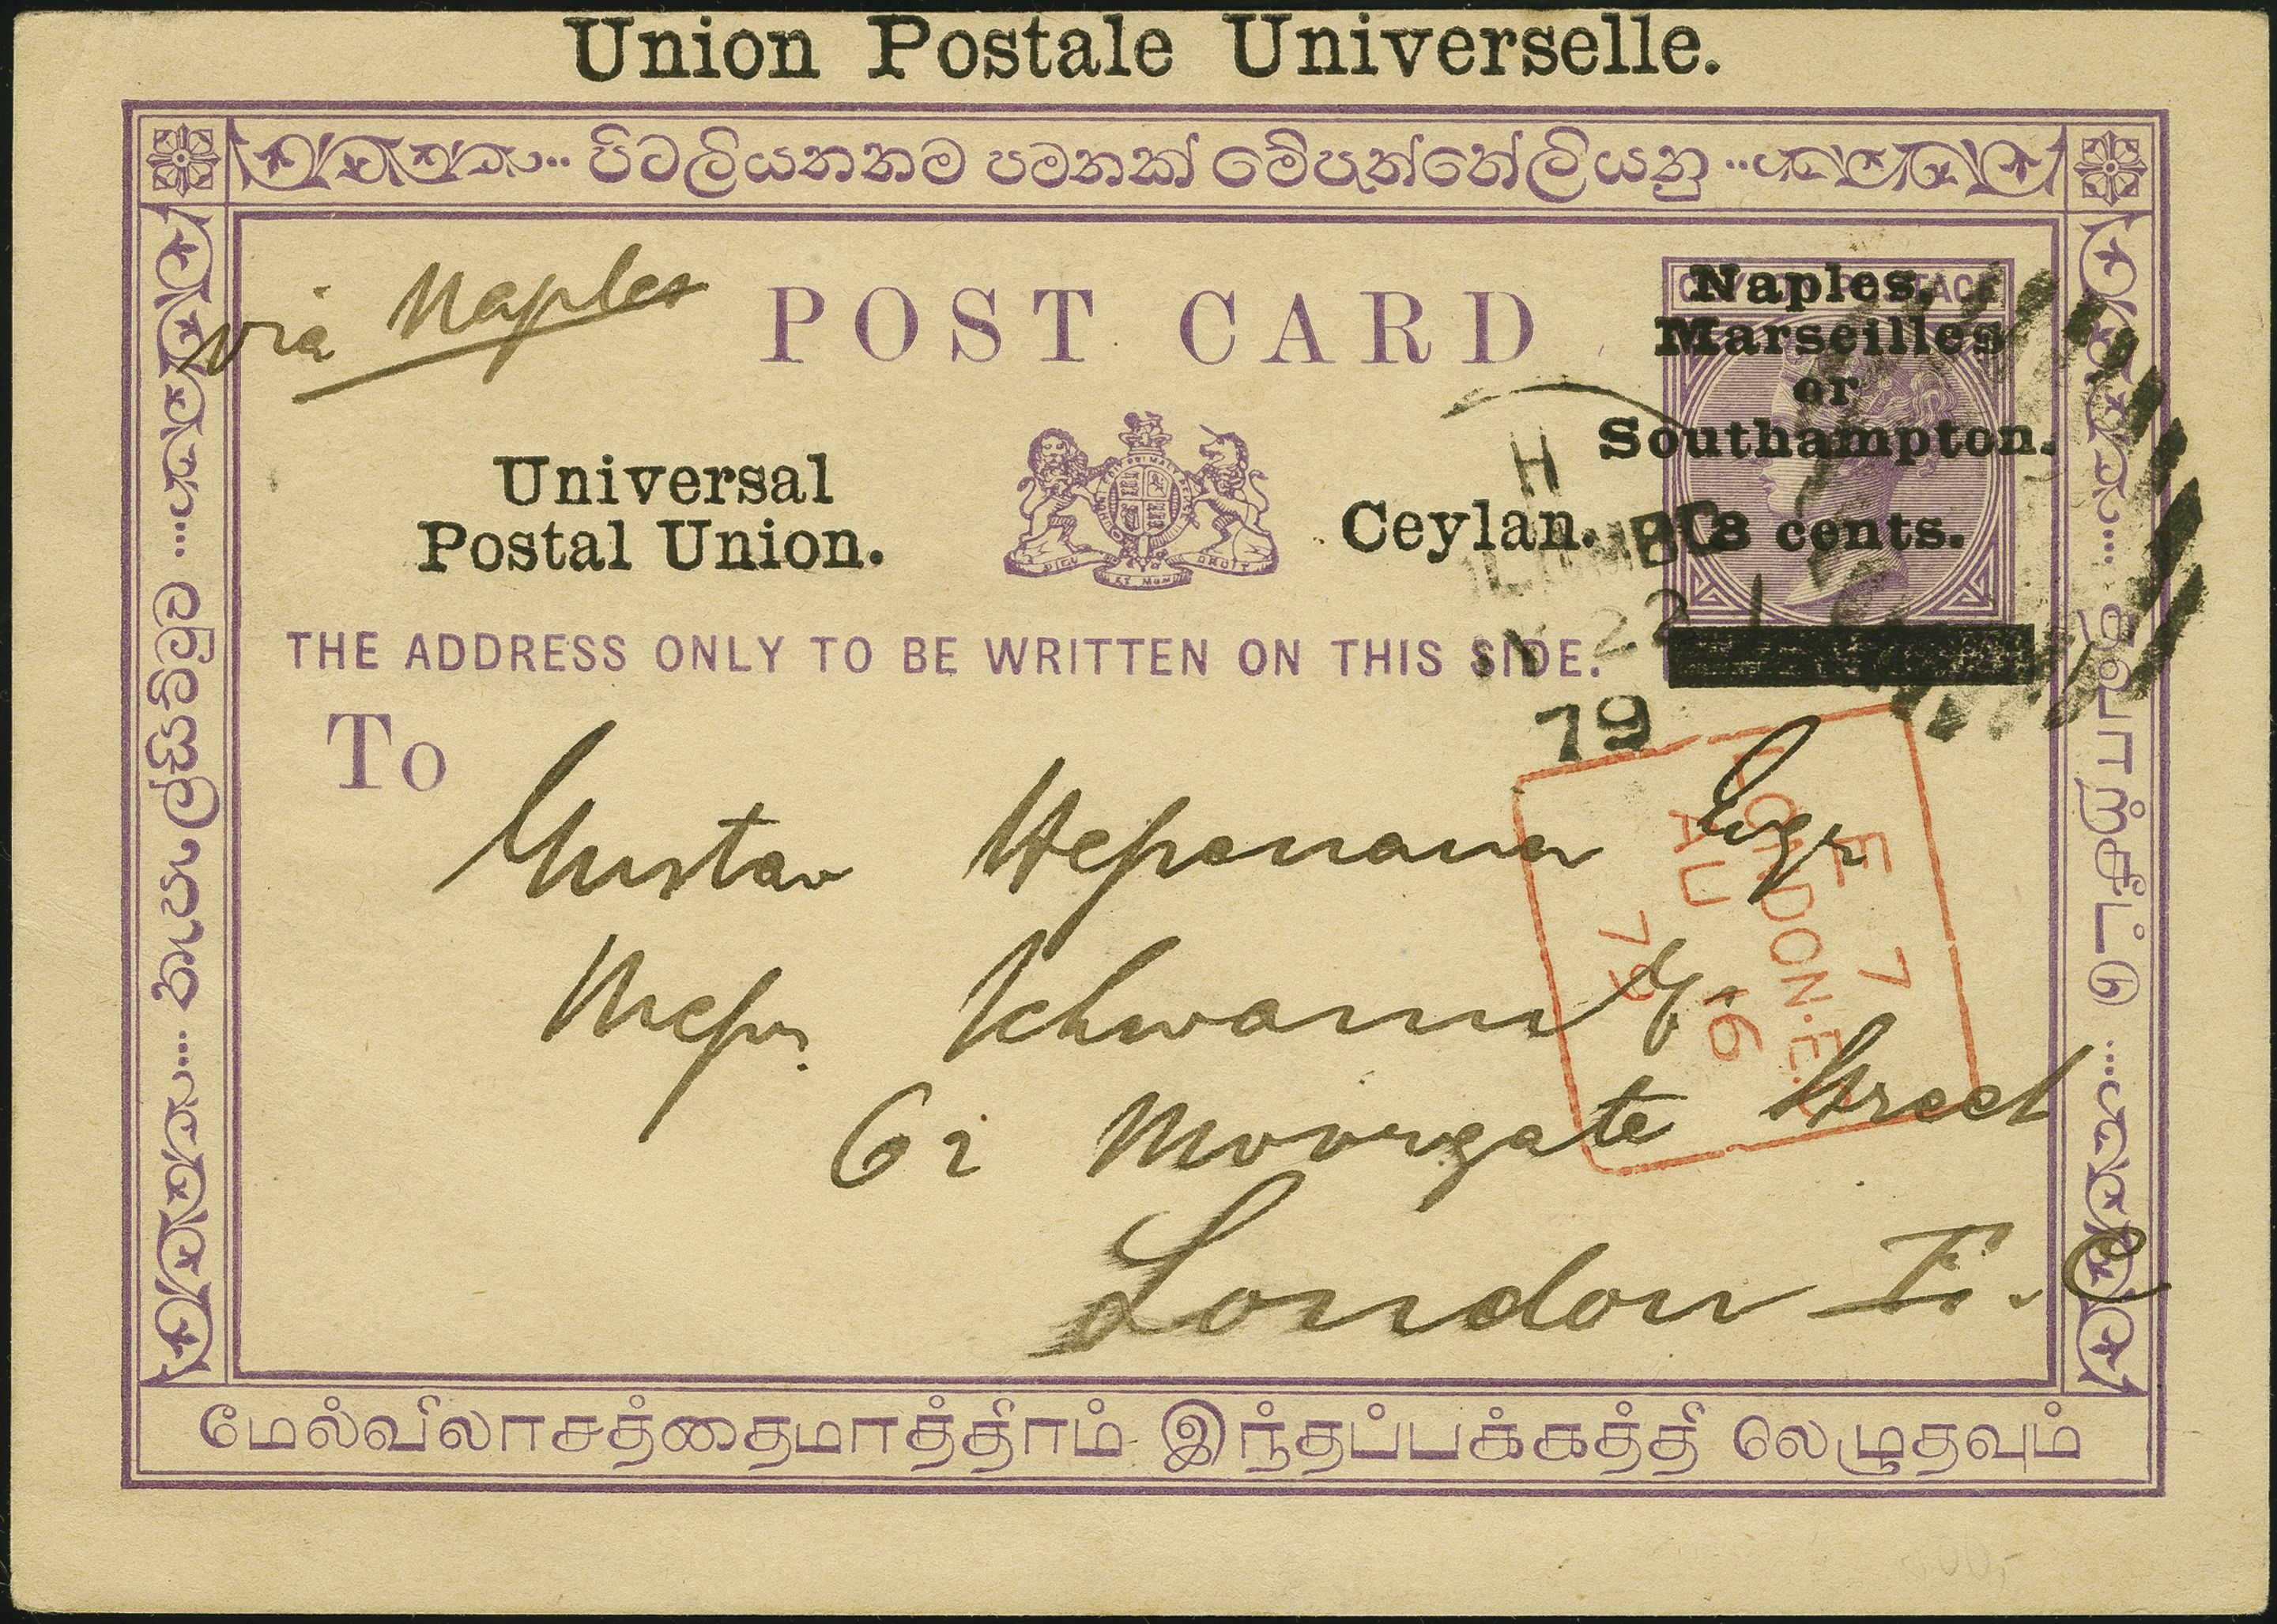 Union Postale Universelle.
පිටලියනතම පමනක් මේපැත්තේලියනු
via Naples
POST CARD
CEYLON POSTAGE
Naples,
Marseilles
or
Southampton.
8 cents.
Universal
Postal Union.
DIEU ET MON DROIT
Ceylan.
H
COLOMBO
22
79
THE ADDRESS ONLY TO BE WRITTEN ON THIS SIDE.
To
Gustav
Messrs. Schwann & Co
62 Moorgate Street
London E.C
E 7
LONDON.E.C
AU 16
79
தபாற்சீட்டு
மேல்விலாசத்தைமாத்திரம் இந்தப்பக்கத்தி லெழுதவும்